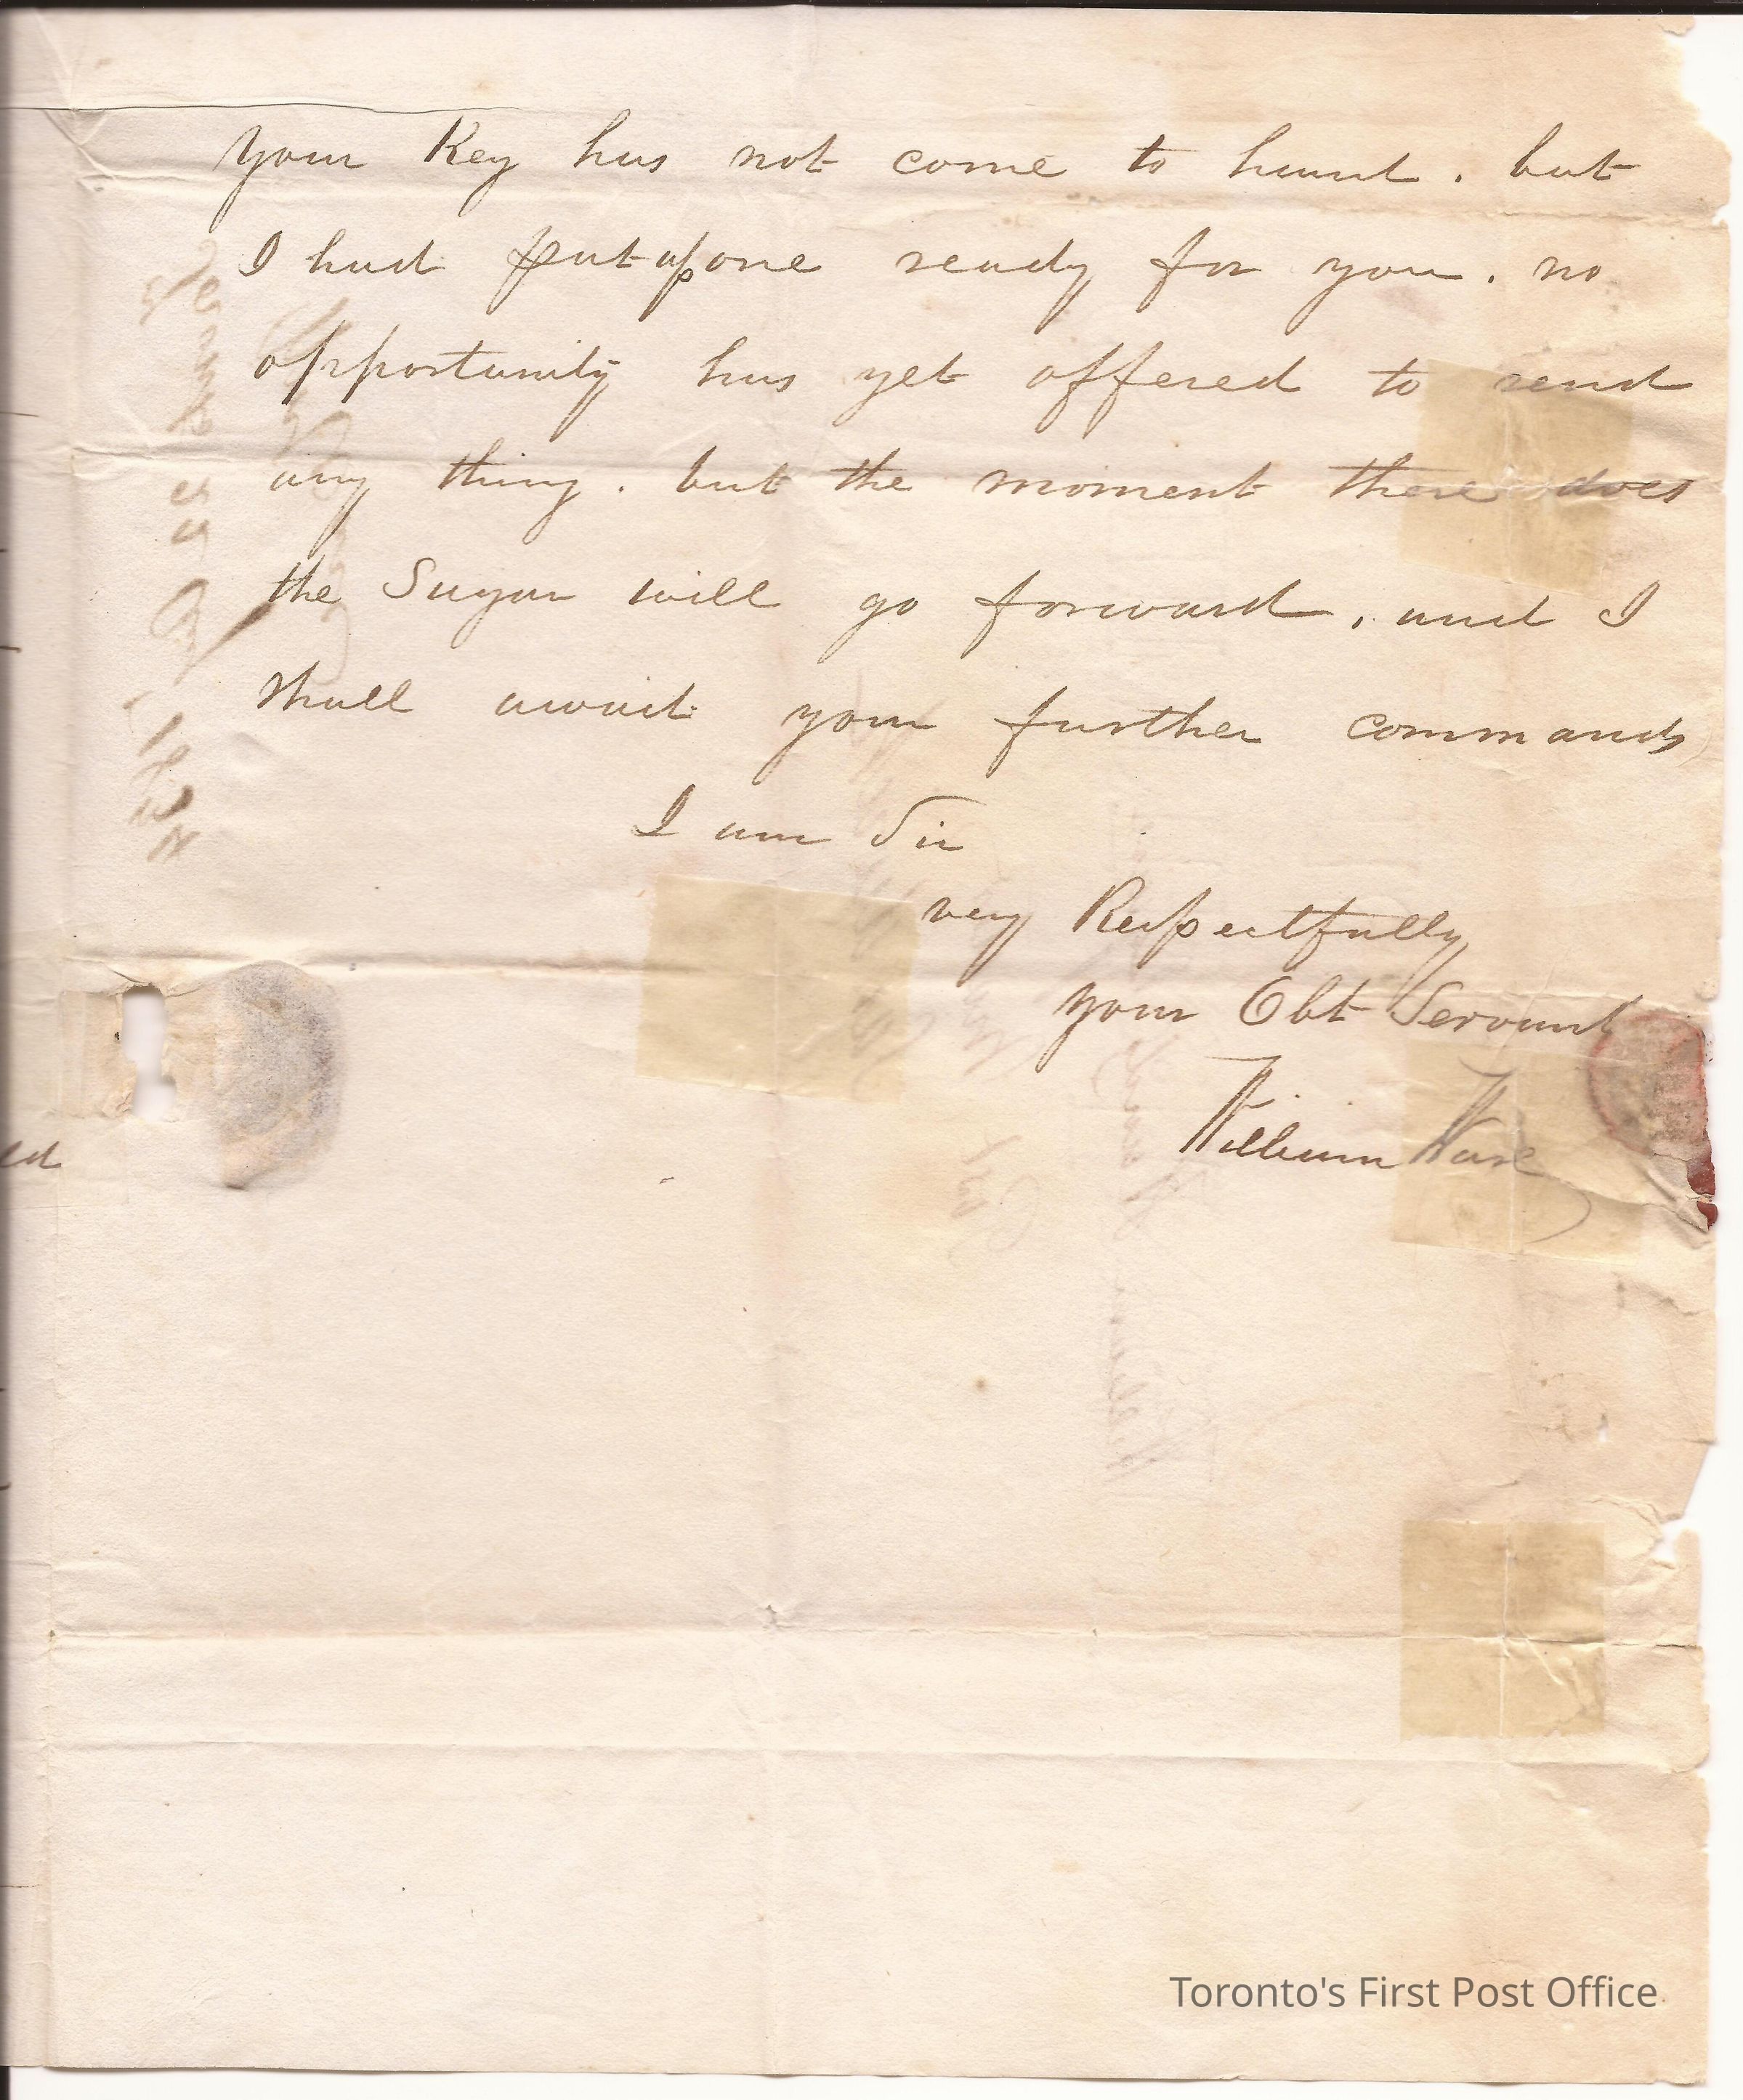 your Key has not come to hand. but
I had put up one ready for you. no
opportunity has yet offered to send
any thing. but the moment there does
the Sugar will go forward, and I
shall await your further commands
I am Sir
very Respectfully
your Obt Servant
William Ware
ed
Toronto's First Post Office